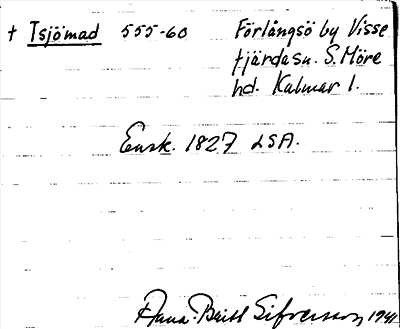 † Tsjömad 555-60 Förlångsö by Visse
fjärdasn. S. Möre
hd. Kalmar l.
Ensk. 1827 LSA.
Anna-Britt Sifversson 1941